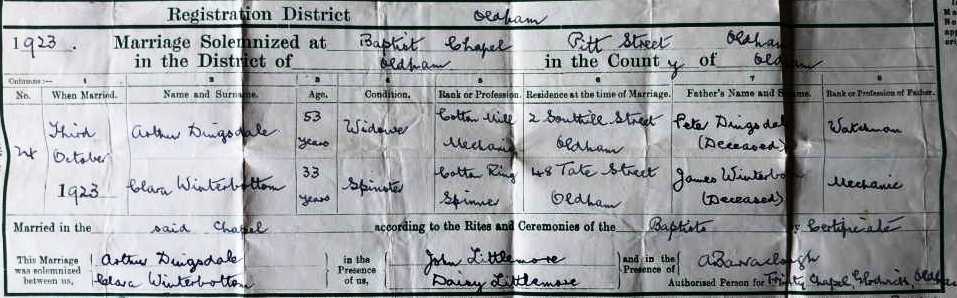 Registration District Oldham
1923. Marriage Solemnized at Baptist Chapel Pitt Street Oldham
in the District of Oldham in the County of Oldham
Columns:— 1 2 3 4 5 6 7 8
No. When Married. Name and Surname. Age. Condition. Rank or Profession. Residence at the time of Marriage. Father's Name and Surname. Rank or Profession of Father.
24 Third October 1923
Arthur Dingsdale 53 years Widower Cotton Mill Mechanic 2 Southill Street Oldham Peter Dingsdale (Deceased) Watchman
Clara Winterbottom 33 years Spinster Cotton Ring Spinner 48 Tate Street Oldham James Winterbottom (Deceased) Mechanic
Married in the said Chapel according to the Rites and Ceremonies of the Baptists by Certificate
This Marriage was solemnized between us, Arthur Dingsdale Clara Winterbottom in the Presence of us, John Littlemore Daisy Littlemore and in the Presence of A Barraclough
Authorised Person for Trinity Chapel Glodwick, Oldham